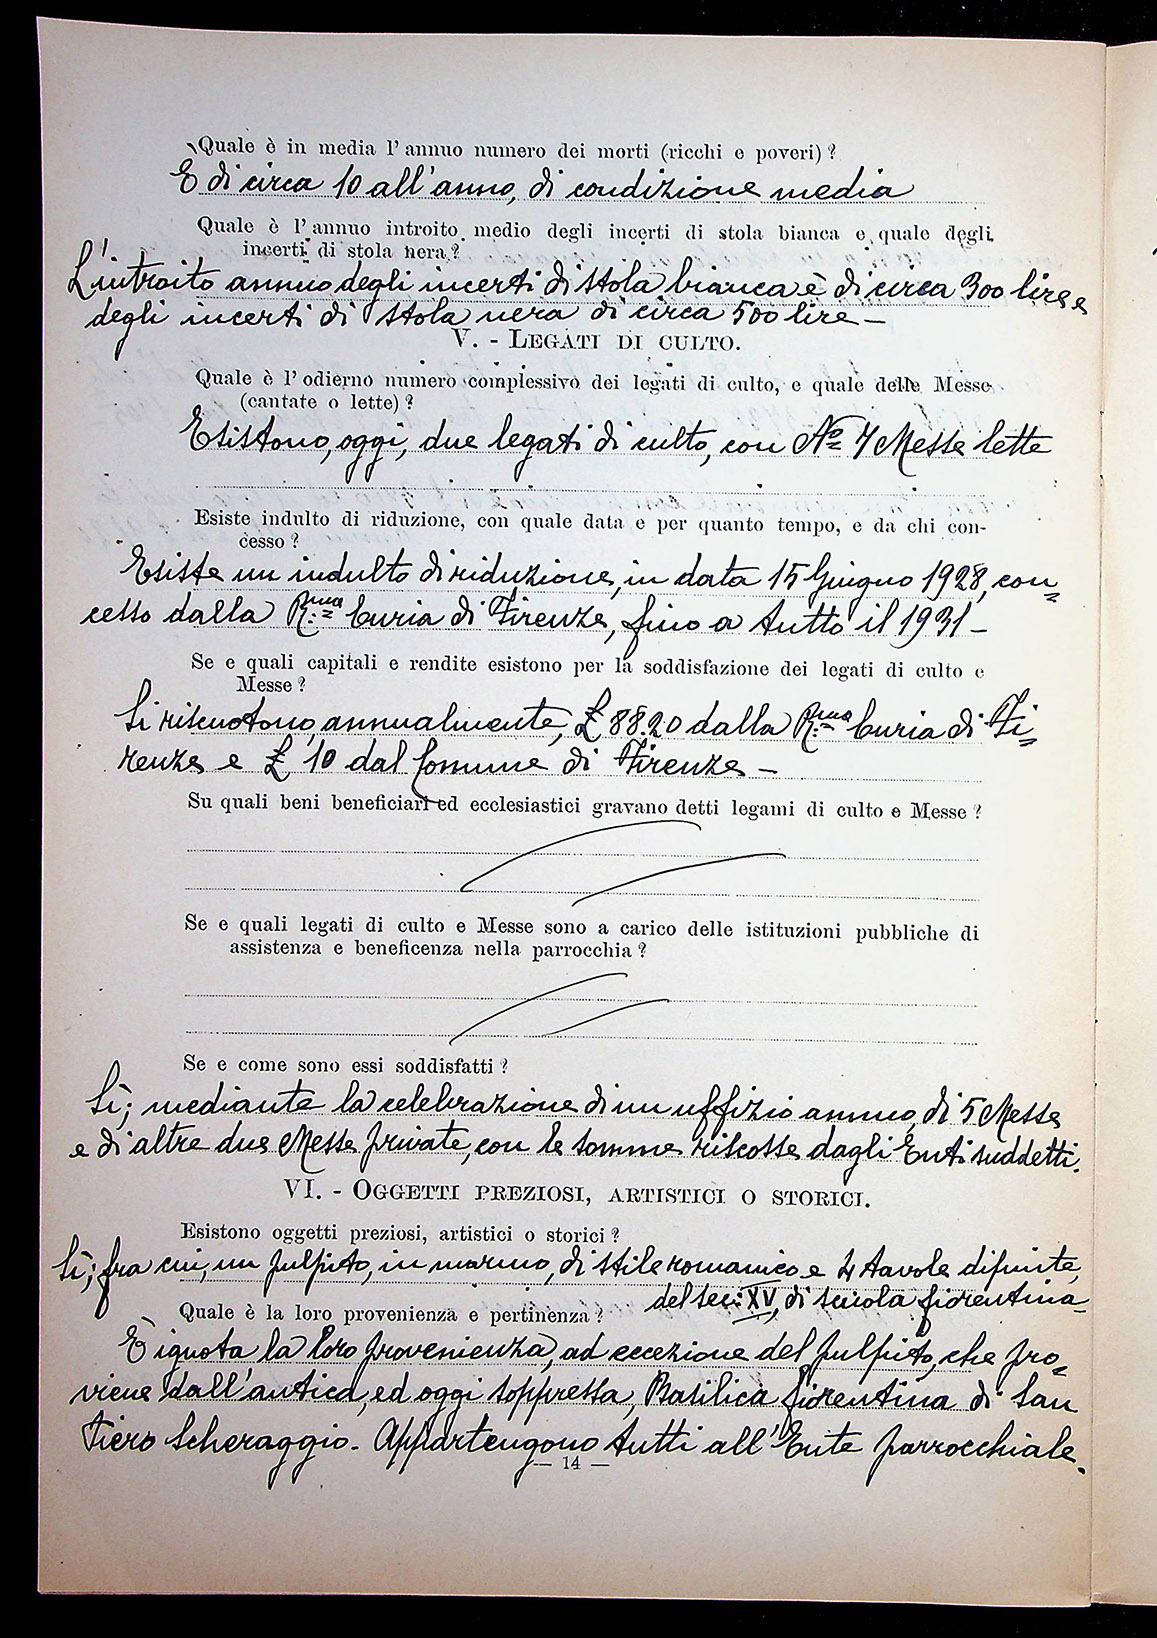 Quale è in media l'annuo numero dei morti (ricchi e poveri)?
E di circa 10 all'anno, di condizione media
Quale è l'annuo introito medio degli incerti di stola bianca e quale degli
incerti di stola nera?
L'introito annuo degli incerti di stola bianca è di circa 300 lire e
degli incerti di stola nera di circa 500 lire —
V. - LEGATI DI CULTO.
Quale è l'odierno numero complessivo dei legati di culto, e quale delle Messe
(cantate o lette)?
Esistono, oggi, due legati di culto, con No 7 Messe lette
Esiste indulto di riduzione, con quale data e per quanto tempo, e da chi con-
cesso?
Esiste un indulto di riduzione, in data 15 Giugno 1928, con=
cesso dalla R.ma Curia di Firenze, fino a tutto il 1931 —
Se e quali capitali e rendite esistono per la soddisfazione dei legati di culto e
Messe?
Si riscuotono, annualmente, £ 88.20 dalla R.ma Curia di Fi=
renze e £ 10 dal Comune di Firenze —
Su quali beni beneficiari ed ecclesiastici gravano detti legami di culto e Messe?
Se e quali legati di culto e Messe sono a carico delle istituzioni pubbliche di
assistenza e beneficenza nella parrocchia?
Se e come sono essi soddisfatti?
Sì; mediante la celebrazione di un uffizio annuo, di 5 Messe
e di altre due Messe private, con le somme riscosse dagli Enti suddetti.
VI. - OGGETTI PREZIOSI, ARTISTICI O STORICI.
Esistono oggetti preziosi, artistici o storici?
Sì; fra cui, un pulpito, in marmo, di stile romanico e 4 tavole dipinte,
del sec: XV, di scuola fiorentina
Quale è la loro provenienza e pertinenza?
È ignota la loro provenienza, ad eccezione del pulpito, che pro=
viene dall'antica, ed oggi soppressa, Basilica fiorentina di San
Piero Scheraggio. Appartengono tutti all'Ente parrocchiale.
— 14 —